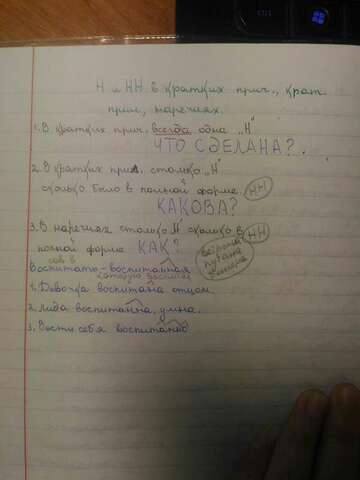 Н и НН в кратких прич., крат.
прил, наречиях.
1. В кратких прич. всегда одна „Н"
ЧТО СДЕЛАНА?.
2. В кратких прил. столько „Н"
сколько было в полной форме НН
КАКОВА?
3. В наречиях столько „Н" сколько в НН
полной форме КАК?
ветрена
путана
сов в
Воспитать - воспитанная
1. Девочка воспитана отцом.
2. Лида воспитанна, умна.
3. Вести себя воспитанно.
Ctrl